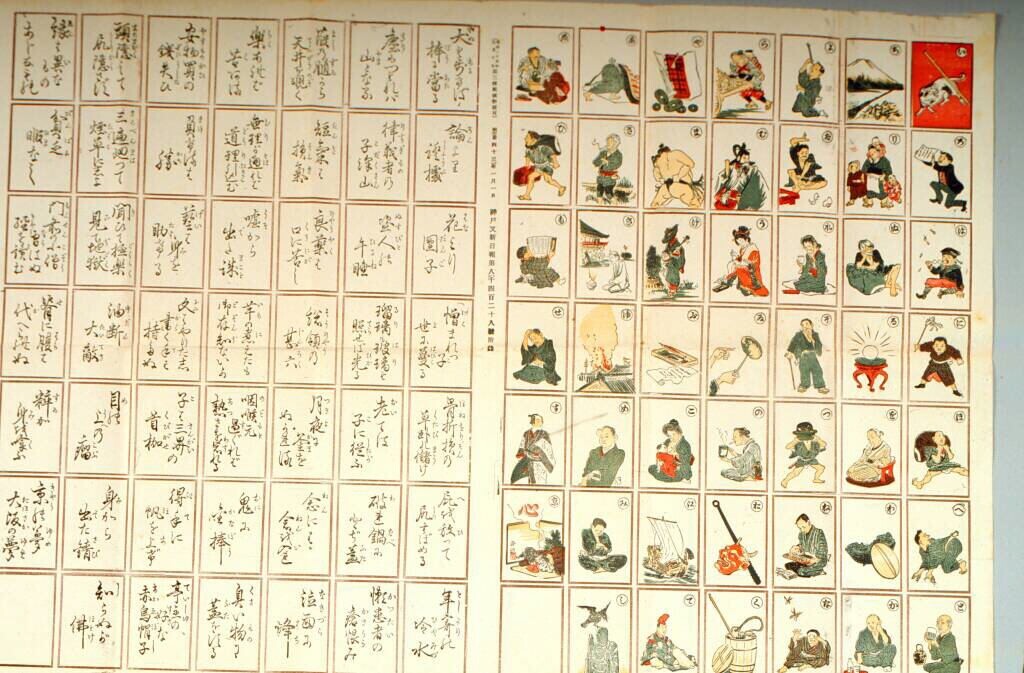 い
ろ
は
に
ほ
へ
と
ち
り
ぬ
る
を
わ
か
よ
た
れ
そ
つ
ね
な
ら
む
う
ゐ
の
お
く
や
ま
け
ふ
こ
え
て
あ
さ
き
ゆ
め
み
し
ゑ
ひ
も
せ
す
京
明治四十三年一月一日 神戸又新日報第八千四百二十九號附録
犬も歩けば
棒に當る
論より證據
花より
團子
憎まれつ子
世に憚る
骨折損の
草臥儲け
屁を放て
尻すぼめる
年寄の
冷水
塵もつもれば
山となる
律義者の
子澤山
盗人の
午睡
瑠璃も玻璃も
照せば光る
老ては
子に従ふ
破れ鍋に
閉ぢ蓋
癩患者の
瘡恨み
葭の髄から
天井を覗く
短氣は
損氣
良薬は
口に苦し
總領の
甚六
月夜に
釜を
ぬかれる
念には
念を
泣面に
蜂
樂あれば
苦あり
無理が通れば
道理引込む
嘘から
出た誠
芋の煮えたも
御存じない
咽喉元
過ぐれば
熱さを忘れる
鬼に
金棒
臭い物に
蓋をする
安物買の
錢失ひ
負けるは
勝
藝は身を
助ける
文はやりたし
書く手は
持たぬ
子は三界の
首枷
得手に
帆を上げ
亭主の
好な
赤烏帽子
頭隠して
尻隠さず
三遍廻つて
煙草にしよ
聞いて極樂
見て地獄
油断
大敵
目の
上の
瘤
身から
出た錆
知らぬが
佛
縁は異な
もの
あぢなもの
貧乏
暇なし
門前の小僧
習はぬ
經を讀む
背に腹は
代へられぬ
粋が
身を食ふ
京の夢
大阪の夢